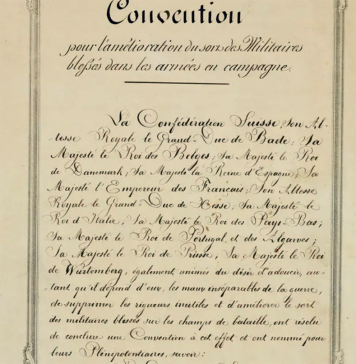 Convention
pour l'amélioration du sort des Militaires
blessés dans les armées en campagne.
La Confédération Suisse, Son Al-
tesse Royale le Grand-Duc de Bade, Sa
Majesté le Roi des Belges, Sa Majesté le Roi
de Danemark, Sa Majesté la Reine d'Espagne, Sa
Majesté l'Empereur des Français, Son Altesse
Royale le Grand-Duc de Hesse, Sa Majesté le
Roi d'Italie, Sa Majesté le Roi des Pays-Bas,
Sa Majesté le Roi de Portugal et des Algarves,
Sa Majesté le Roi de Prusse, Sa Majesté le Roi
de Würtemberg, également animés du désir d'adoucir, au-
tant qu'il dépend d'eux, les maux inséparables de la guerre,
de supprimer les rigueurs inutiles et d'améliorer le sort
des militaires blessés sur les champs de bataille, ont résolu
de conclure une Convention à cet effet et ont nommé pour
leurs Plénipotentiaires, savoir: